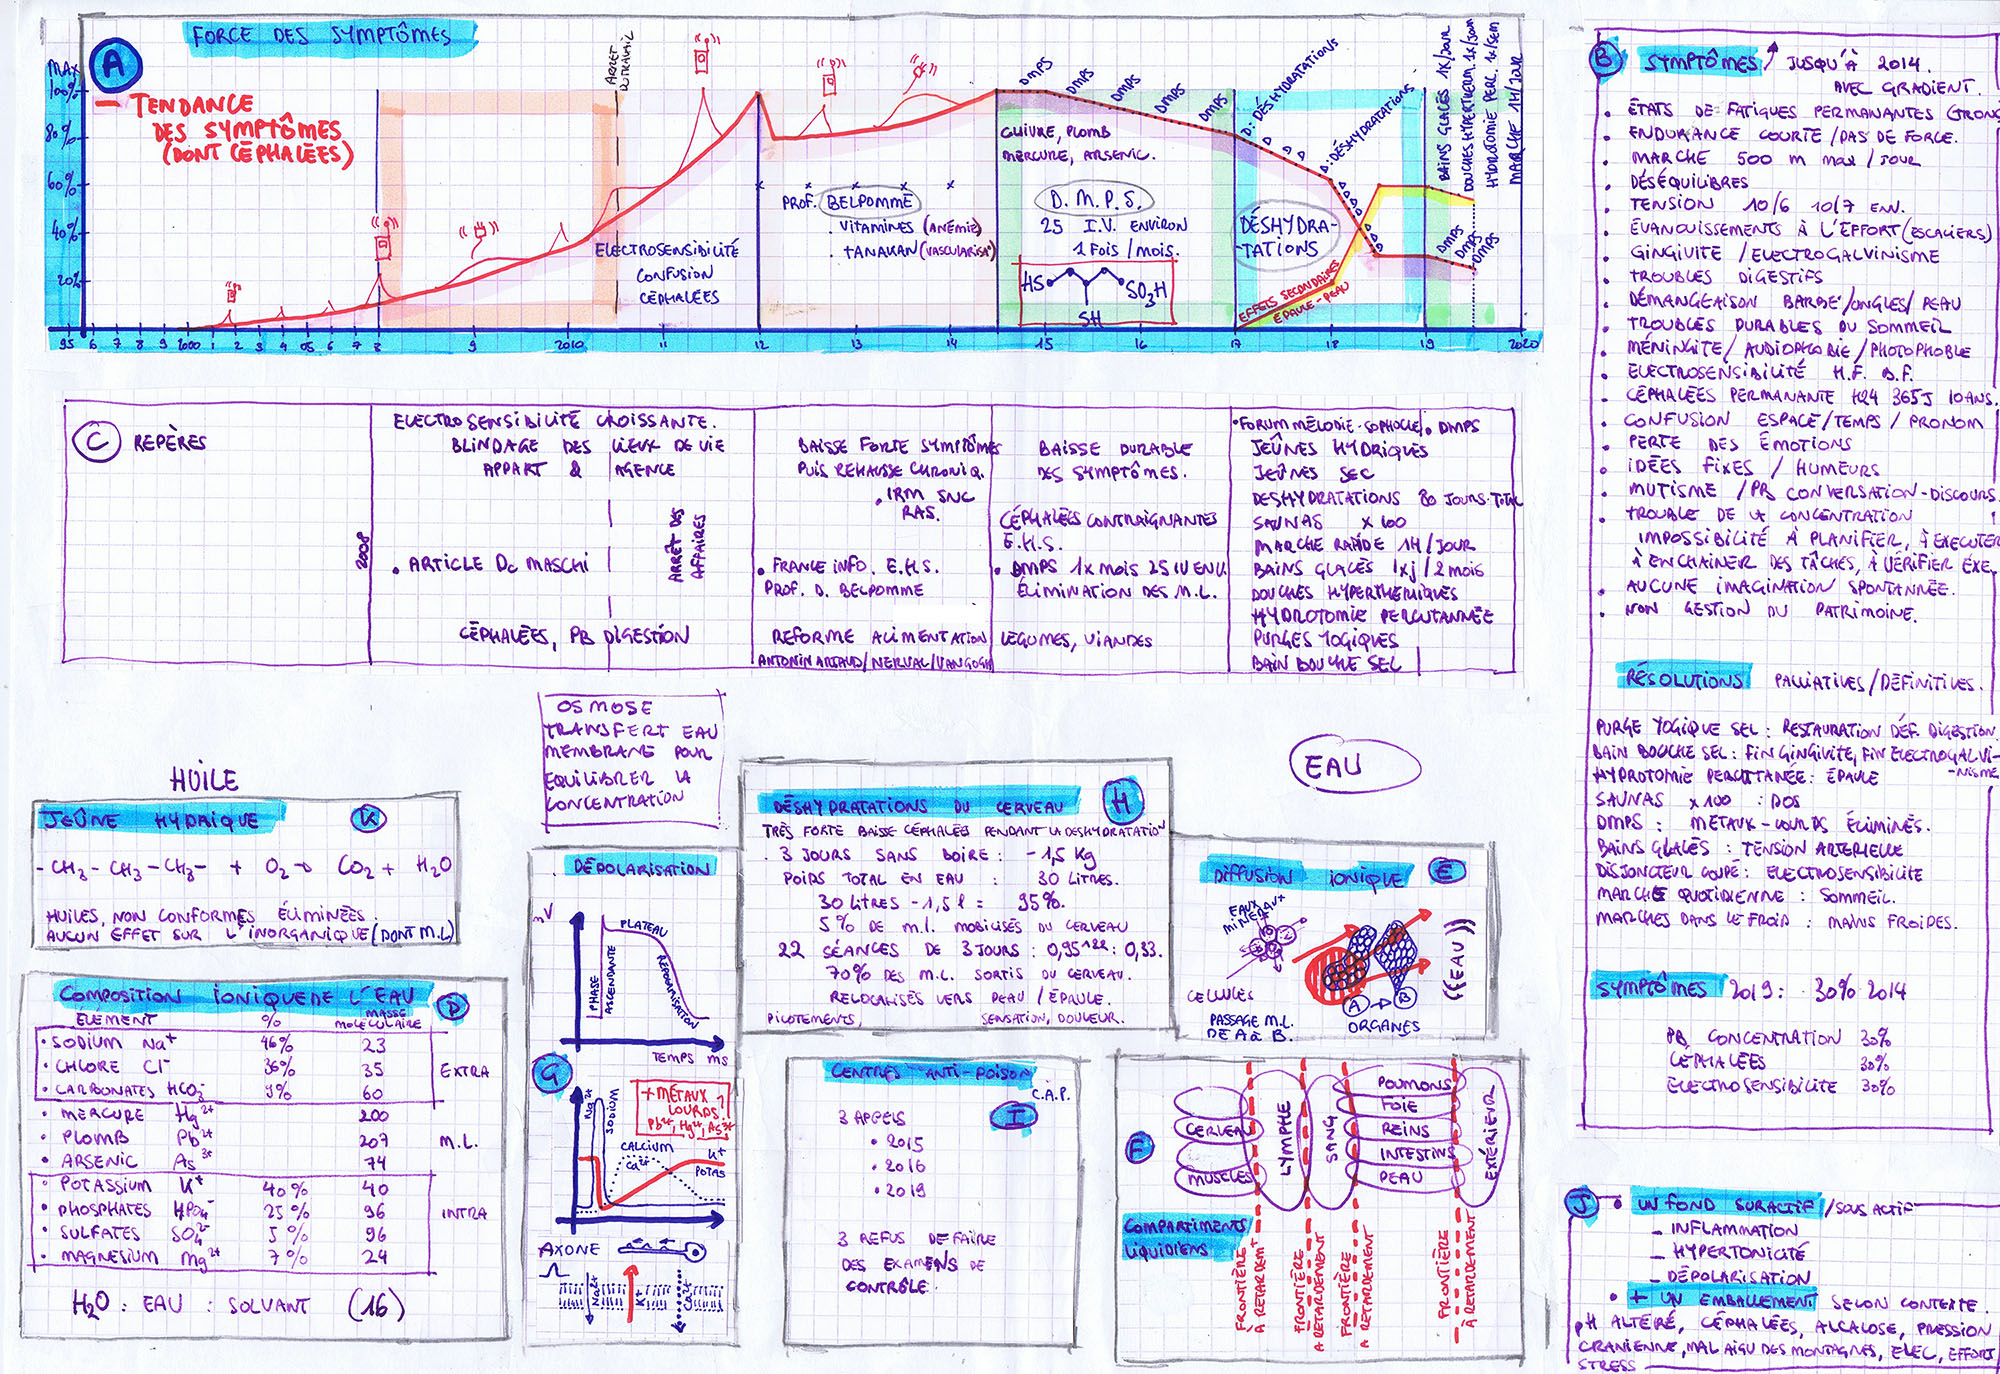 A
FORCE DES SYMPTÔMES
MAX
100%
80%
60%
40%
20%
— TENDANCE
DES SYMPTÔMES
(DONT CÉPHALÉES)
ARRÊT
DU TRAVAIL
ELECTROSENSIBILITÉ
CONFUSION
CÉPHALÉES
PROF. BELPOMME
. VITAMINES (ANÉMIE)
. TANAKAN (VASCULARISA°)
CUIVRE, PLOMB
MERCURE, ARSENIC.
D.M.P.S.
25 I.V. ENVIRON
1 FOIS / MOIS.
HS
SO3H
SH
DMPS
DMPS
DMPS
DMPS
DMPS
D: DÉSHYDRATATIONS
D: DÉSHYDRATATIONS
DÉSHYDRA-
TATIONS
EFFETS SECONDAIRES
ÉPAULE - PEAU
BAINS GLACÉS 1X/JOUR
DOUCHES HYPERTHERM. 1X/JOUR
HYDROTOMIE PER. 1X/SEM
MARCHE 1H/JOUR
DMPS
DMPS
DMPS
95 6 7 8 9 2000 1 2 3 4 05 6 7 8 9 2010 11 12 13 14 15 16 17 18 19 2020
B
SYMPTÔMES JUSQU'À 2014.
AVEC GRADIENT.
. ÉTATS DE FATIGUES PERMANANTES
. ENDURANCE COURTE / PAS DE FORCE.
. MARCHE 500 m max / JOUR
. DÉSÉQUILIBRES
. TENSION 10/6 10/7 ENV.
. ÉVANOUISSEMENTS À L'EFFORT (ESCALIERS)
. GINGIVITE / ELECTROGALVINISME
. TROUBLES DIGESTIFS
. DÉMANGEAISON BARBE / ONGLES / PEAU
. TROUBLES DURABLES DU SOMMEIL
. MÉNINGITE / AUDIOPHOBIE / PHOTOPHOBIE
. ELECTROSENSIBILITÉ H.F. B.F.
. CÉPHALÉES PERMANANTE H24 365J 10ANS.
. CONFUSION ESPACE / TEMPS / PRONOM
. PERTE DES ÉMOTIONS
. IDÉES FIXES / HUMEURS
. MUTISME / PB CONVERSATION - DISCOURS.
. TROUBLE DE LA CONCENTRATION
IMPOSSIBILITÉ À PLANIFIER, À EXECUTER
À ENCHAINER DES TÂCHES, À VÉRIFIER EXE.
. AUCUNE IMAGINATION SPONTANÉE.
. NON GESTION DU PATRIMOINE.
RÉSOLUTIONS PALLIATIVES / DÉFINITIVES.
PURGE YOGIQUE SEL : RESTAURATION DÉF. DIGESTION
BAIN BOUCHE SEL : FIN GINGIVITE, FIN ELECTROGALVI-
-NISME
HYDROTOMIE PERCUTTANÉE : ÉPAULE
SAUNAS X100 : DOS
DMPS : METAUX - LOURDS ÉLIMINÉS.
BAINS GLACÉS : TENSION ARTERIELLE
DISJONCTEUR COUPÉ : ELECTROSENSIBILITE
MARCHE QUOTIDIENNE : SOMMEIL.
MARCHES DANS LE FROID : MAINS FROIDES.
SYMPTÔMES 2019 : 30% 2014
PB CONCENTRATION 30%
CÉPHALÉES 30%
ELECTROSENSIBILITE 30%
C REPÈRES
2008
ELECTROSENSIBILITÉ CROISSANTE.
BLINDAGE DES LIEUX DE VIE
APPART & AGENCE
. ARTICLE Dc MASCHI
ARRÊT DES
AFFAIRES
CÉPHALÉES, PB DIGESTION
BAISSE FORTE SYMPTÔMES
PUIS REHAUSSE CHRONIQ.
. IRM SNC
RAS.
. FRANCE INFO. E.H.S.
PROF. D. BELPOMME
REFORME ALIMENTATION
ANTONIN ARTAUD / NERVAL / VAN GOGH
BAISSE DURABLE
DES SYMPTÔMES.
CÉPHALÉES CONTRAIGNANTES
E.H.S.
. DMPS 1X MOIS 25 IV ENV.
ÉLIMINATION DES M.L.
LEGUMES, VIANDES
. FORUM MÉLODIE - SOPHOCLE . DMPS
JEÛNES HYDRIQUES
JEÛNES SEC
DESHYDRATATIONS 80 JOURS. TOTAL
SAUNAS X 100
MARCHE RAPIDE 1H / JOUR
BAINS GLACÉS 1xj / 2 MOIS
DOUCHES HYPERTHERMIQUES
HYDROTOMIE PERCUTANNÉE
PURGES YOGIQUES
BAIN BOUCHE SEL
OSMOSE
TRANSFERT EAU
MEMBRANE POUR
EQUILIBRER LA
CONCENTRATION
EAU
HUILE
JEÛNE HYDRIQUE K
- CH3 - CH3 - CH3 - + O2 → CO2 + H2O
HUILES, NON CONFORMES ÉLIMINÉES.
AUCUN EFFET SUR L'INORGANIQUE (DONT M.L)
COMPOSITION IONIQUE DE L'EAU D
ÉLÉMENT % MASSE MOLECULAIRE
. SODIUM Na+ 46% 23
. CHLORE Cl- 36% 35
. CARBONATES HCO3- 9% 60
EXTRA
. MERCURE Hg2+ 200
. PLOMB Pb2+ 207
. ARSENIC As3+ 74
M.L.
. POTASSIUM K+ 40% 40
. PHOSPHATES HPO4- 25% 96
. SULFATES SO42- 5% 96
. MAGNESIUM Mg2+ 7% 24
INTRA
H2O : EAU : SOLVANT (16)
DÉPOLARISATION
mV
PLATEAU
PHASE
ASCENDANTE
REPOLARISATION
TEMPS ms
G
Na2+
SODIUM
+ MÉTAUX
LOURDS
Pb2+, Hg2+, As3+
CALCIUM
Ca2+
K+
POTAS
AXONE
Na2+
K+
Ca2+
DÉSHYDRATATIONS DU CERVEAU H
TRÈS FORTE BAISSE CÉPHALÉES PENDANT LA DESHYDRATATION
. 3 JOURS SANS BOIRE : - 1,5 Kg
POIDS TOTAL EN EAU : 30 LITRES.
30 LITRES - 1,5 l = 95%.
5% DE M.L. MOBILISÉS DU CERVEAU
22 SÉANCES DE 3 JOURS : 0,95^22 : 0,33.
70% DES M.L. SORTIS DU CERVEAU.
RELOCALISÉS VERS PEAU / ÉPAULE.
PICOTEMENTS, SENSATION, DOULEUR.
DIFFUSION IONIQUE E
EAUX
MINÉRAUX
CELLULES
PASSAGE M.L.
DE A à B.
A → B
ORGANES
((EAU))
CENTRES ANTI-POISON
C.A.P.
I
3 APPELS
. 2015
. 2016
. 2019
3 REFUS DE FAIRE
DES EXAMENS DE
CONTRÔLE.
F
CERVEAU
MUSCLES
LYMPHE
SANG
POUMONS
FOIE
REINS
INTESTINS
PEAU
EXTÉRIEUR
COMPARTIMENTS
LIQUIDIENS
FRONTIÈRE
À RETARDEMt
FRONTIÈRE
À RETARDEMENT
FRONTIÈRE
À RETARDEMENT
FRONTIÈRE
À RETARDEMENT
J
. UN FOND SURACTIF / SOUS ACTIF
- INFLAMMATION
- HYPERTONICITÉ
- DÉPOLARISATION
. + UN EMBALLEMENT SELON CONTEXTE.
pH ALTÉRÉ, CÉPHALÉES, ALCALOSE, PRESSION
CRANIENNE, MAL AIGU DES MONTAGNES, ELEC, EFFORT
STRESS